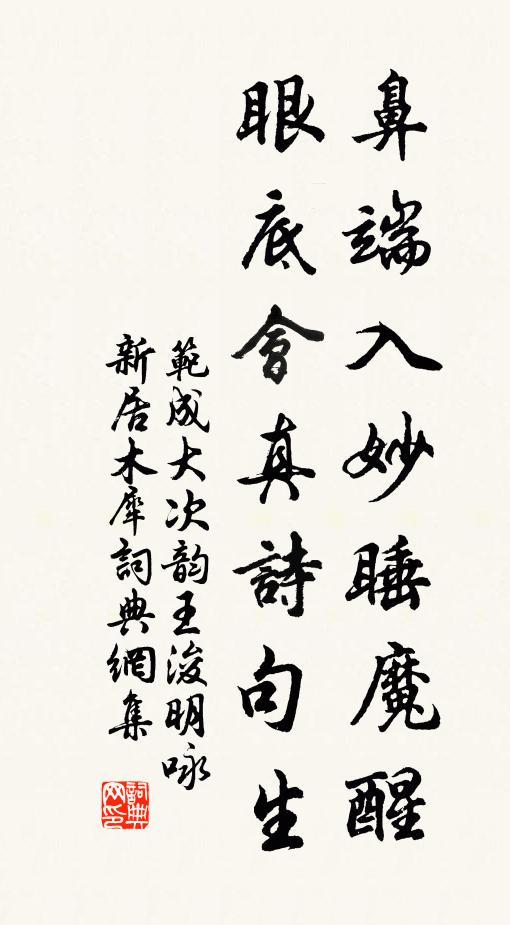 鼻端入妙睡魔醒
眼底會真詩句生
範成大次韵王浚明咏
新居木犀詞典網集
詞典网印